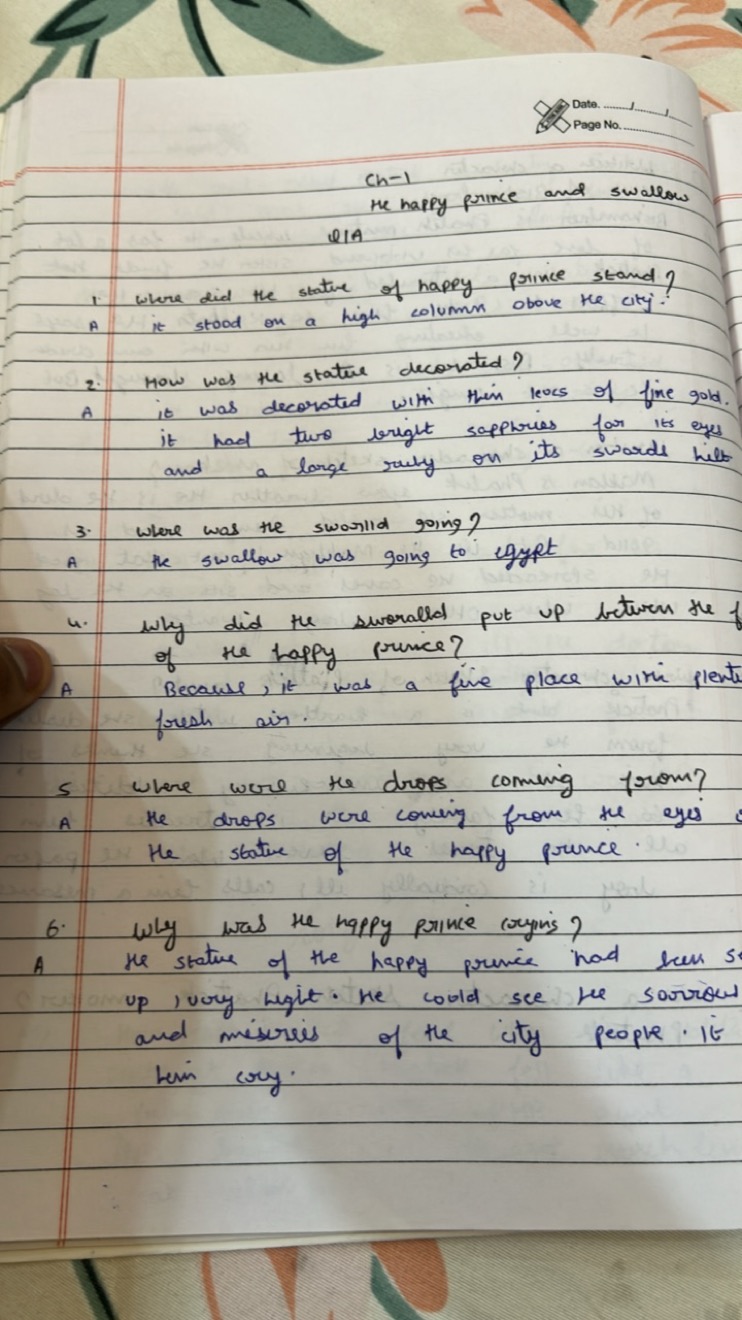 Date. ....../....../......
Page No. ..................
Ch-1
The happy prince and swallow
Q/A
1. Where did the statue of happy prince stand?
A it stood on a high column above the city.
2. How was the statue decorated?
A it was decorated with thin leves of fine gold.
it had two bright sapphries for its eyes
and a large ruby on its swords hilt
3. Where was the going?
A the swallow was going to egypt
4. Why did the put up between the f
of the happy prince?
A Because, it was a fine place with plent
fresh air.
5 Where were the drops comming from?
A the drops were coming from the eyes
the statue of the happy prince.
6. Why was the happy prince crying?
A The statue of the happy prince had been s
up, very hight. He could see the sorrow
and of the city people. it
him cry.